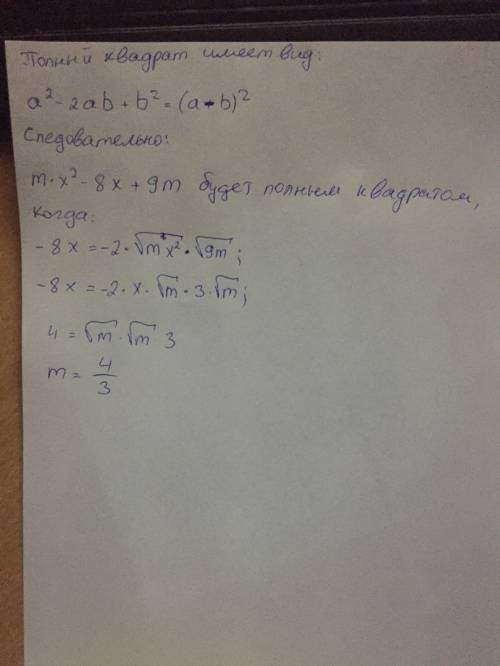 Полный квадрат имеет вид:
a² - 2ab + b² = (a - b)²
Следовательно:
m · x² - 8x + 9m будет полным квадратом,
когда:
-8x = -2 · √mx² · √9m ;
-8x = -2 · x · √m · 3 · √m ;
4 = √m · √m 3
m = 4/3